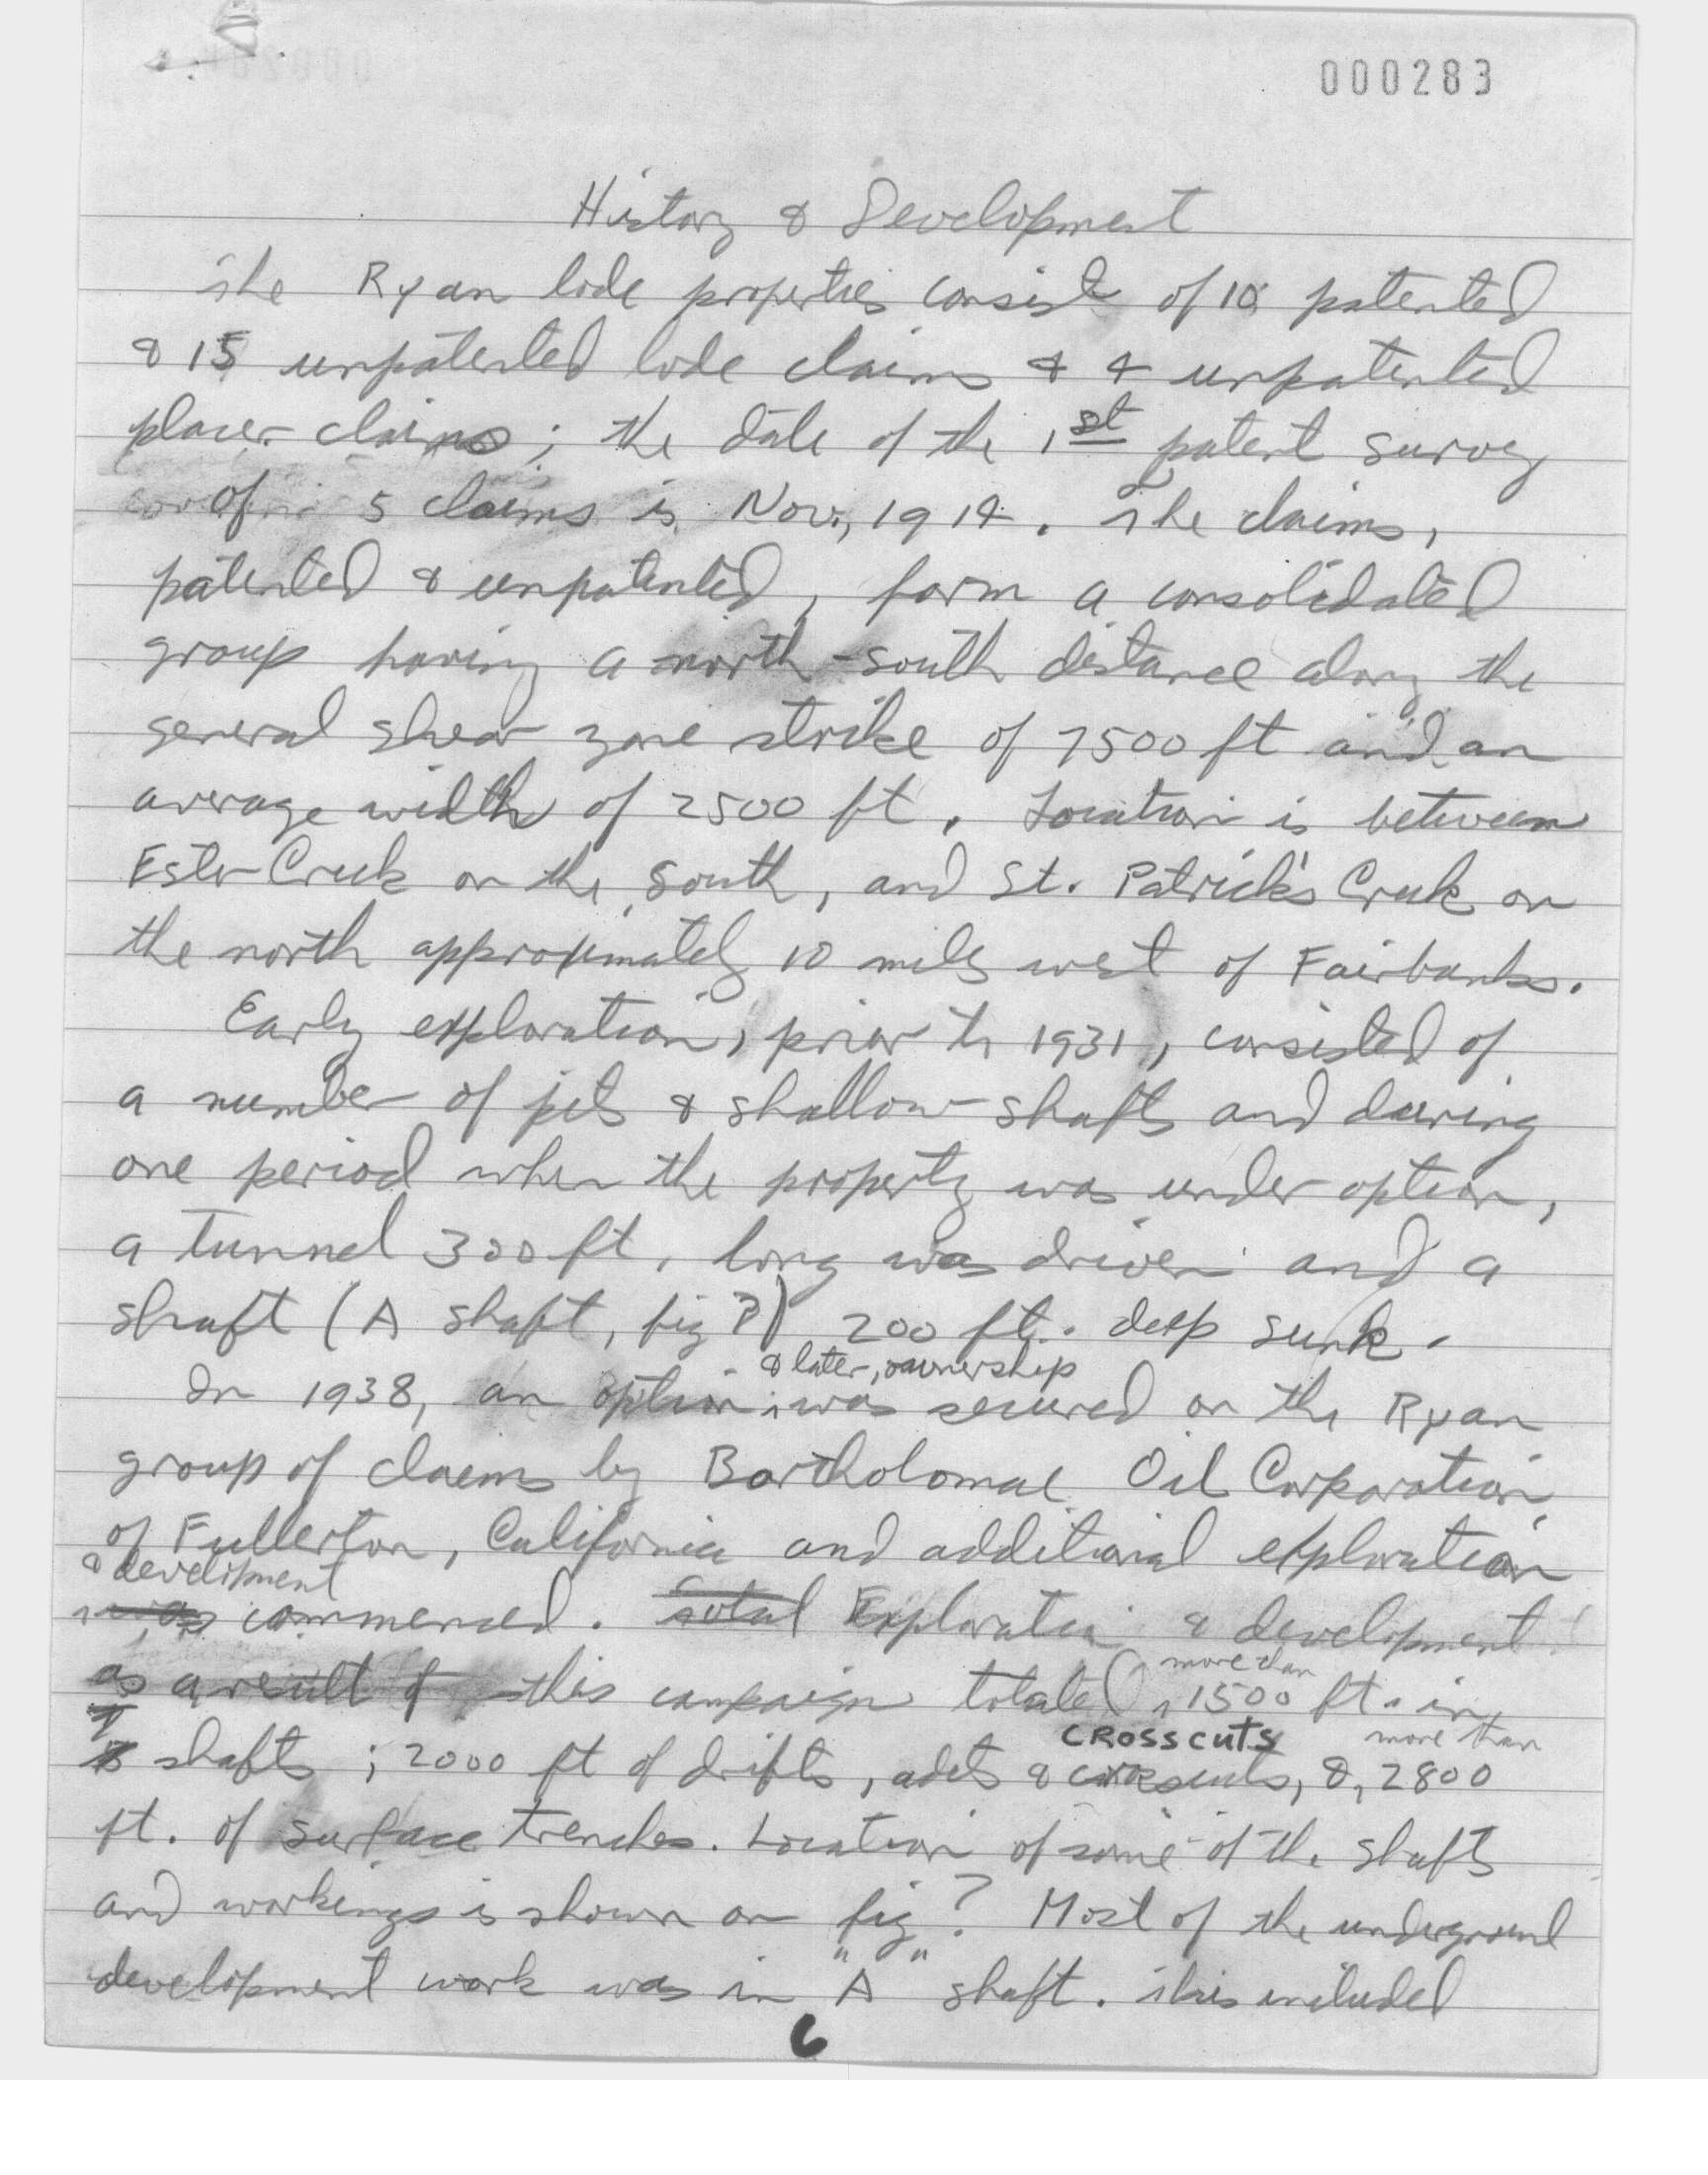 000283
History & Development
The Ryan lode properties consist of 10 patented
& 15 unpatented lode claims & 4 unpatented
placer claims; the date of the 1st patent survey
of 5 claims is Nov., 1914. The claims,
patented & unpatented, form a consolidated
group having a north-south distance along the
general shear zone strike of 7500 ft and an
average width of 2500 ft. Location is between
Ester Creek on the south, and St. Patrick's Creek on
the north approximately 10 miles west of Fairbanks.
Early exploration, prior to 1931, consisted of
a number of pits & shallow shafts and during
one period when the property was under option,
a tunnel 300 ft. long was driven and a
shaft (A shaft, fig ?) 200 ft. deep sunk.
& later, ownership
In 1938, an option was secured on the Ryan
group of claims by Bartholomae Oil Corporation
of Fullerton, California and additional exploration
& development
was commenced. Total Exploration & development
more than
as a result of this campaign totaled 1500 ft. in
CROSSCUTS more than
shafts; 2000 ft of drifts, adits & crosscuts, &, 2800
ft. of surface trenches. Location of some of the shafts
and workings is shown on fig ? Most of the underground
development work was in "A" shaft. This included
6